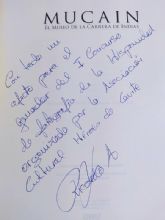 MUCAIN
EL MUSEO DE LA CARRERA DE INDIAS
Con todo mi
afecto para el
ganador del I Concurso
de fotografía de la Hispanidad
organizado por la Asociación
Cultural Héroes de Cavite